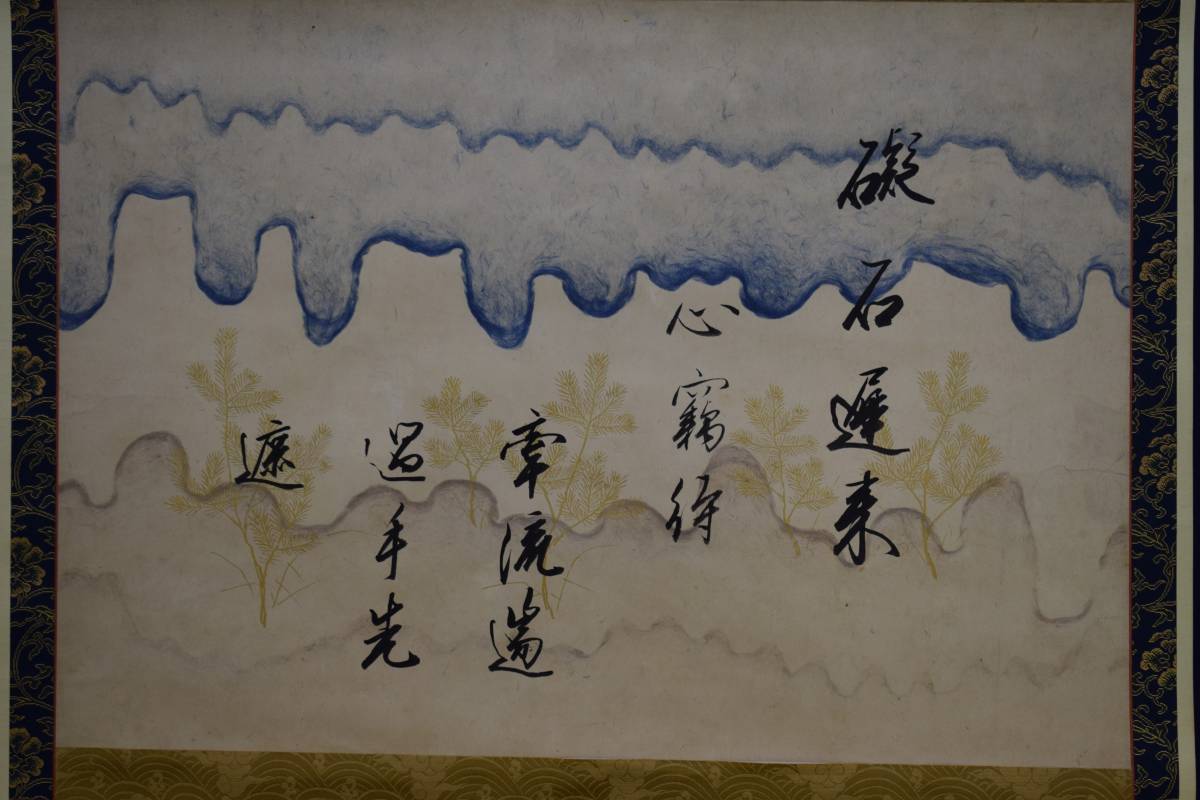 礙石遅来
心竊待
牽流遄
過手先
遮